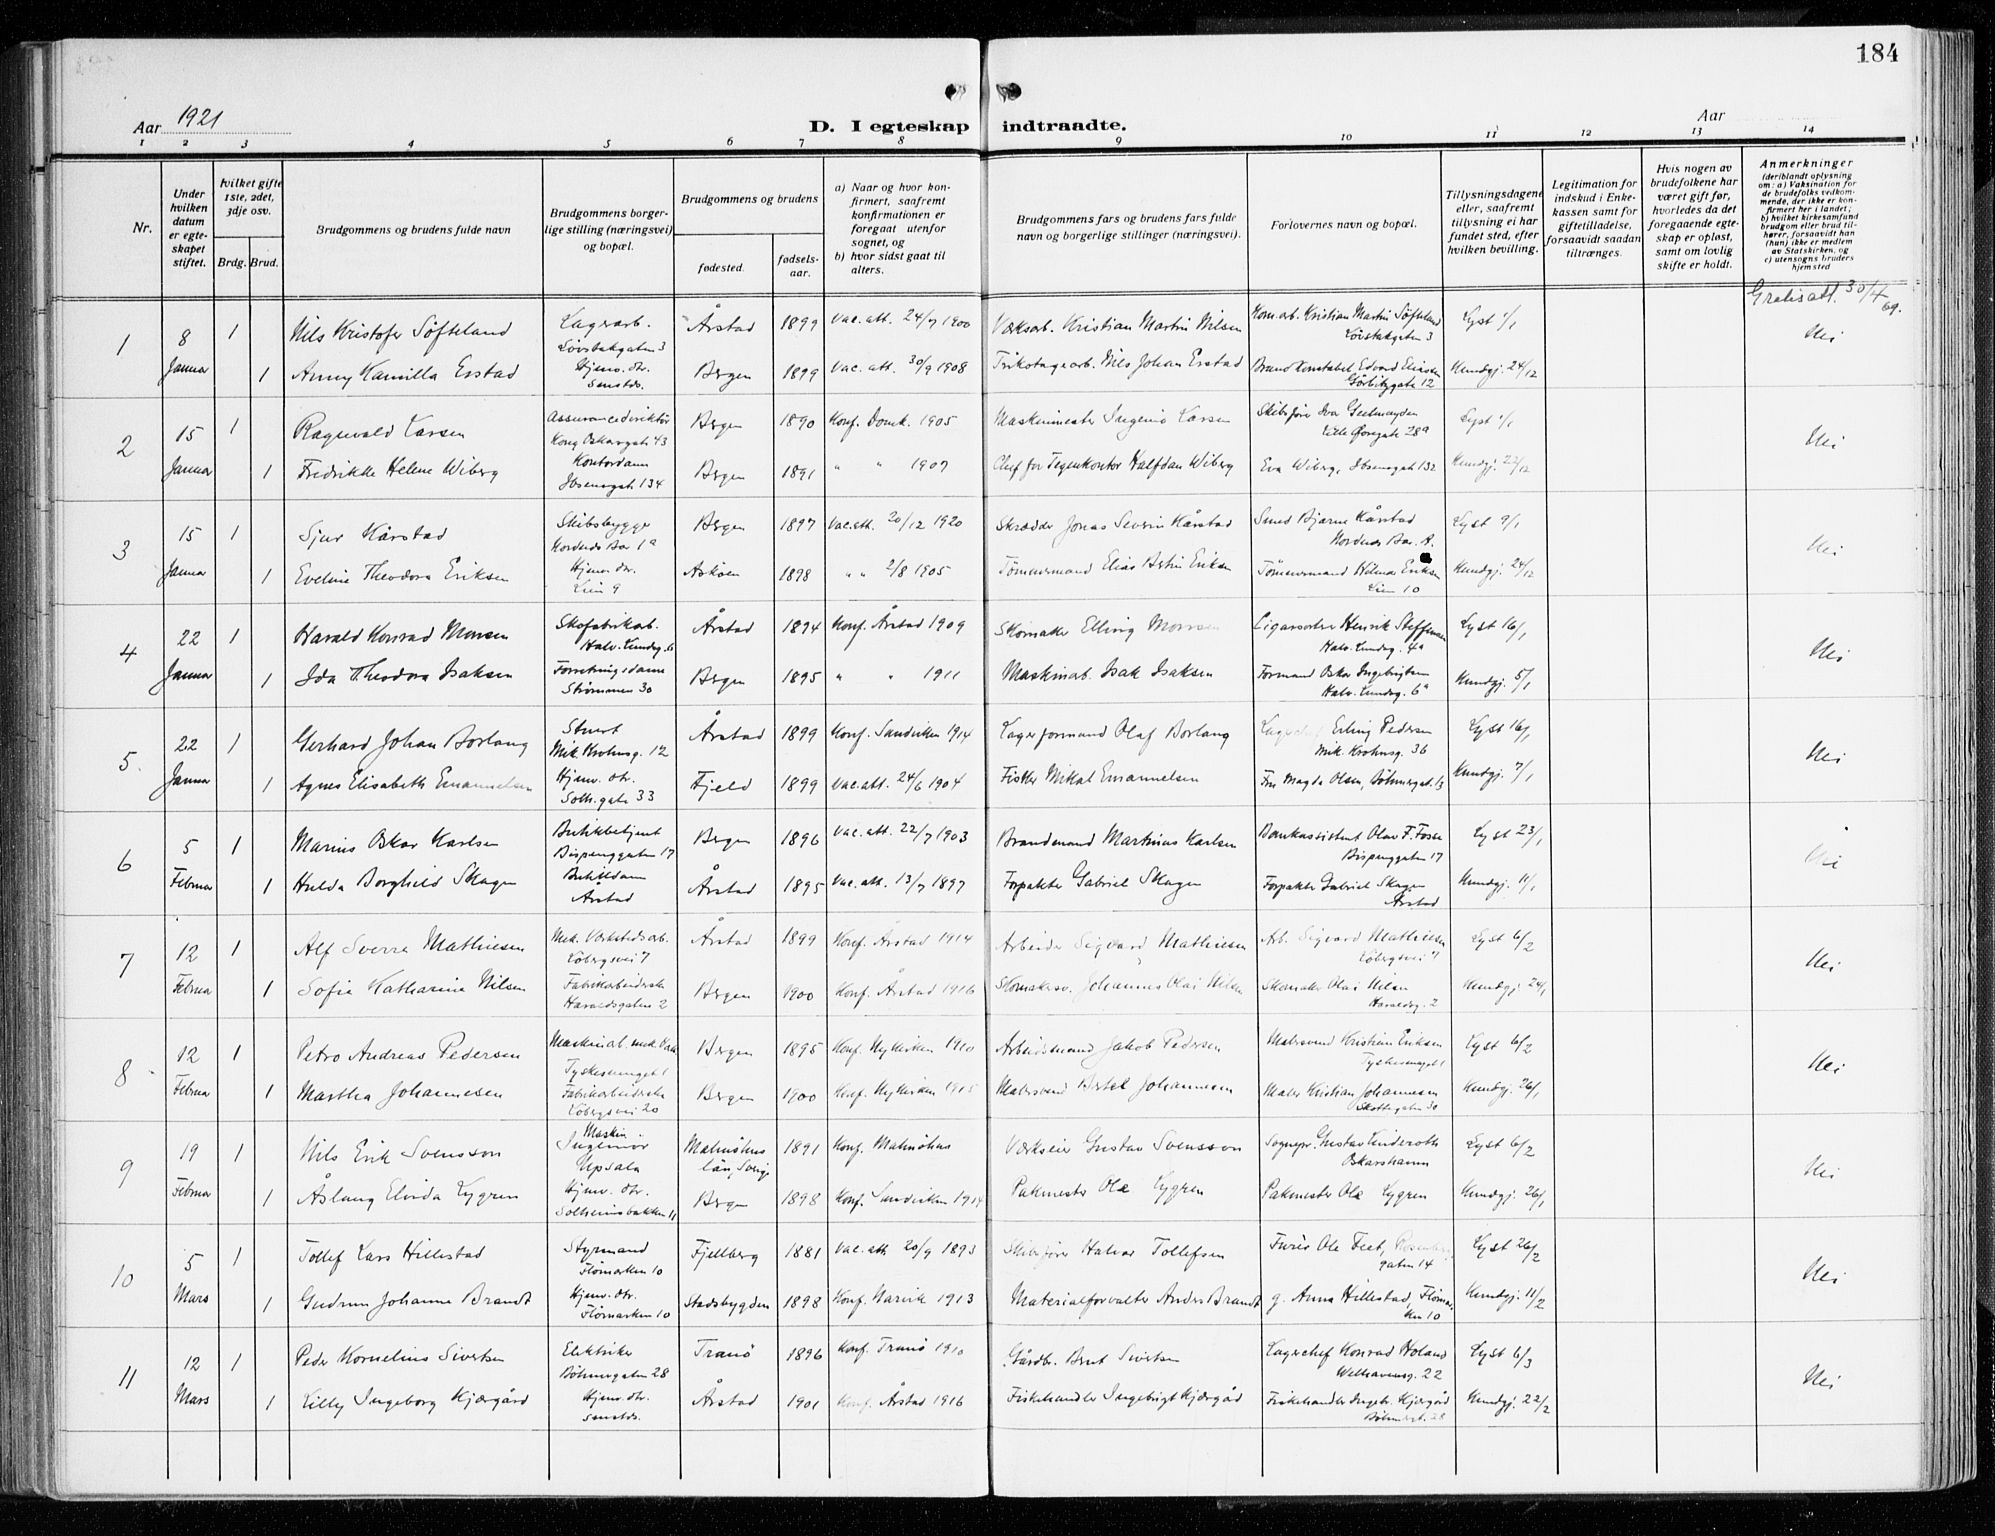 184
Aar 1921
D. I egteskap indtraadte.
Aar
1 2 3 4 5 6 7 8 9 10 11 12 13 14
Nr.
Under hvilken datum er egteskapet stiftet.
hvilket gifte 1ste, 2det, 3dje osv.
Brdg. Brud.
Brudgommens og brudens fulde navn
Brudgommens borgerlige stilling (næringsvei) og bopæl.
Brudgommens og brudens
fødested.
fødselsaar.
a) Naar og hvor konfirmert, saafremt konfirmationen er foregaat utenfor sognet, og
b) hvor sidst gaat til alters.
Brudgommens fars og brudens fars fulde navn og borgerlige stillinger (næringsvei).
Forlovernes navn og bopæl.
Tillysningsdagene eller, saafremt tillysning ei har fundet sted, efter hvilken bevilling.
Legitimation for indskud i Enkekassen samt for giftetilladelse, forsaavidt saadan tiltrænges.
Hvis nogen av brudefolkene har været gift før, hvorledes da det foregaaende egteskap er opløst, samt om lovlig skifte er holdt.
Anmerkninger
(deriblandt oplysning om: a) Vaksination for de brudefolks vedkommende, der ikke er konfirmert her i landet; b) hvilket kirkesamfund brudgom eller brud tilhører, forsaavidt han (hun) ikke er medlem av Statskirken, og c) utensogns bruders hjemsted
Gratisatt. 30/4 69.
1 8 Januar 1 Nils Kristofer Søfteland Lagerarb. Løvstakgaten 3 Årstad 1899 Vac. att. 24/7 1900 Værksarb. Kristian Martin Nilsen Kom. arb. Kristian Martin Søfteland Løvstakgaten 3 Lyst 1/1 Nei
1 Anny Kamilla Erstad Hjemv. dtr. Bergen 1899 Vac. att. 30/9 1908 Trikotagearb. Nils Johan Erstad Brand Konstabel Edvard Eliassen Görbitzgate 12 Kundgj. 24/12
2 15 Januar 1 Ragnvald Larsen Assurancedirektør Kong Oskarsgate 43 Bergen 1890 Konf. Domk. 1905 Maskinmester Ingemø Larsen Skibsfører Lille Øvregate 28a Lyst 1/1 Nei
1 Fredrikke Helene Wiberg Kontordame Ibsensgate 134 Bergen 1891 " " 1907 Chef for Tegnekontor Halfdan Wiberg Eva Wiberg, Ibsensgate 132 Kundgj. 22/12
3 15 Januar 1 Sjur Kårstad Skibsbygger 1a Bergen 1897 Vac. att. 20/12 1920 Skrædder Jonas Severin Kårstad Smed Bjarne Kårstad Lyst 9/1 Nei
1 Eveline Theodora Eriksen Hjemv. dtr. Lien 9 Askøen 1898 " " 2/8 1905 Tømmermand Elias Bertin Eriksen Tømmermand Hilmar Eriksen Lien 10 Kundgj. 24/12
4 22 Januar 1 Harald Konrad Monsen Skofabrikarb. Halv. Lundsg. 6 Årstad 1894 Konf. Årstad 1909 Skomaker Elling Monsen Cigarsorter Henrik Steffensen Halv. Lundsg. 4a Lyst 16/1 Nei
1 Ida Theodora Isaksen Forretningsdame Strømmen 30 Bergen 1895 " " 1911 Maskinarb. Isak Isaksen Formand Oskar Ingebrigtsen Halv. Lundsg. 6a Kundgj. 5/1
5 22 Januar 1 Gerhard Johan Borlaug Stuert Mik. Krohnsg. 12 Årstad 1899 Konf. Sandviken 1914 Lagerformand Olaf Borlaug Lagerchef Erling Pedersen Mik. Krohnsg. 36 Lyst 16/1 Nei
1 Agnes Elisabeth Emanuelsen Hjemv. dtr. Solh.gate 33 Fjeld 1899 Vac. att. 24/6 1904 Fisker Mikal Emanuelsen Fru Magda Olsen, Bøhmergat. 13 Kundgj. 7/1
6 5 Februar 1 Marius Oskar Karlsen Butikbetjent Bispenggaten 17 Bergen 1896 Vac. att. 22/7 1903 Brandmand Martinius Karlsen Bankassistent Olav F. Fosse Bispenggaten 17 Lyst 23/1 Nei
1 Hulda Borghild Skagen Butikdame Årstad Årstad 1895 Vac. att. 13/7 1897 Forpakter Gabriel Skagen Forpakter Gabriel Skagen Årstad Kundgj. 11/1
7 12 Februar 1 Alf Sverre Mathiesen Mek. Værkstedsarb. Løbergsvei 7 Årstad 1899 Konf. Årstad 1914 Arbeider Sigvard Mathiesen Arb. Sigvard Mathiesen Løbergsvei 7 Lyst 6/2 Nei
1 Sofie Katharine Nilsen Fabrikarbeiderske Haraldsgaten 2 Bergen 1900 Konf. Årstad 1916 Skomakersv. Johannes Olai Nilsen Skomaker Olai Nilsen Haraldsg. 2 Kundgj. 24/1
8 12 Februar 1 Petro Andreas Pedersen Maskinarb. mek. Værk. Tyskesmuget 1 Bergen 1895 Konf. Nykirken 1910 Arbeidsmand Jakob Pedersen Malersvend Kristian Eriksen Tyskesmuget 1 Lyst 6/2 Nei
1 Martha Johannesen Fabrikarbeiderske Løbergsvei 20 Bergen 1900 Konf. Nykirken 1915 Malersvend Bertel Johannesen Maler Kristian Johannesen Skottegaten 30 Kundgj. 26/1
9 19 Februar 1 Nils Erik Svensson Maskin Ingeniør Upsala Malmøhus län, Sverige 1891 Konf. Malmøhus Værkseier Gustav Svensson Sognepr. Gustav Kinderoth Oskarshamn Lyst 6/2 Nei
1 Åslaug Elvida Lygren Hjemv. dtr. Solheimsbakken 11 Bergen 1898 Konf. Sandviken 1914 Pakmester Ole Lygren Pakmester Ole Lygren Kundgj. 26/1
10 5 Mars 1 Tollef Lars Hillestad Styrmand Flømarken 10 Fjellberg 1881 Vac. att. 20/9 1893 Skibsfører Halvor Tollefsen Furér Ole Feet, Rosenberggaten 14 Lyst 26/2 Nei
1 Gudrun Johanne Brandt Hjemv. dtr. Flømarken 10 Stadsbygden 1898 Konf. Narvik 1913 Materialforvalter Anders Brandt g. Anna Hillestad, Flømarken 10 Kundgj. 11/2
11 12 Mars 1 Peder Kornelius Sivertsen Elektriker Bøhmergaten 28 Tranø 1896 Konf. Tranø 1910 Gårdbr. Bernt Sivertsen Lagerchef Konrad Holand Welhavensg. 22 Lyst 6/3 Nei
1 Lilly Ingeborg Kjærgård Hjemv. dtr. senstds. Årstad 1901 Konf. Årstad 1916 Fiskehandler Ingebrigt Kjærgård Fiskehandler Ingebr. Kjærgård Bøhmergt. 28 Kundgj. 22/2